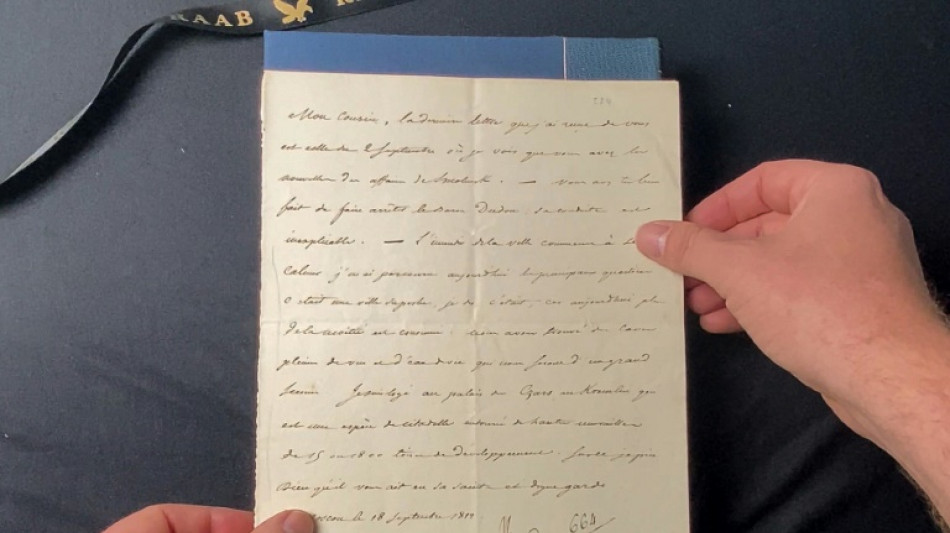 RAAB
Mon Cousin, la dernière lettre que j'ai reçue de vous
est celle du 2 Septembre où je vois que vous avez les
nouvelles des affaires de Smolensk. — Vous avez très bien
fait de faire arrêter le Sieur Dudon, sa conduite est
inexplicable. — L'incendie de la ville commence à se
calmer. j'ai parcouru aujourd'hui les principaux quartiers
c'était une ville superbe. je dis c'était, car aujourd'hui plus
de la moitié est consumé. nous avons trouvé des caves
pleines de vin et d'eau de vie qui nous seront d'un grand
secours. Je suis logé au palais des Czars au Kremlin qui
est une espèce de citadelle entourée de hautes murailles
de 15 à 1800 toises de développement. Sur ce je prie
Dieu qu'il vous ait en sa sainte et digne garde
le 18 Septembre 1812
664